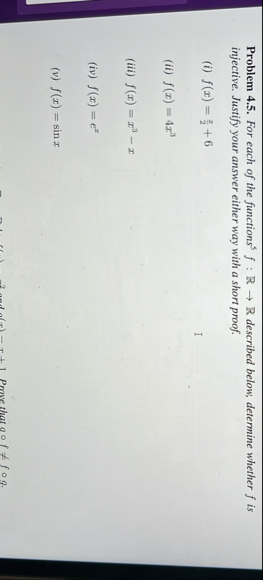 Problem 4.5. For each of the functions⁵ f : ℝ → ℝ described below, determine whether f is
injective. Justify your answer either way with a short proof.
(i) f(x) = x/2 + 6
(ii) f(x) = 4x³
(iii) f(x) = x³ − x
(iv) f(x) = eˣ
(v) f(x) = sin x
and g(x) = x + 1. Prove that g ∘ f ≠ f ∘ g.